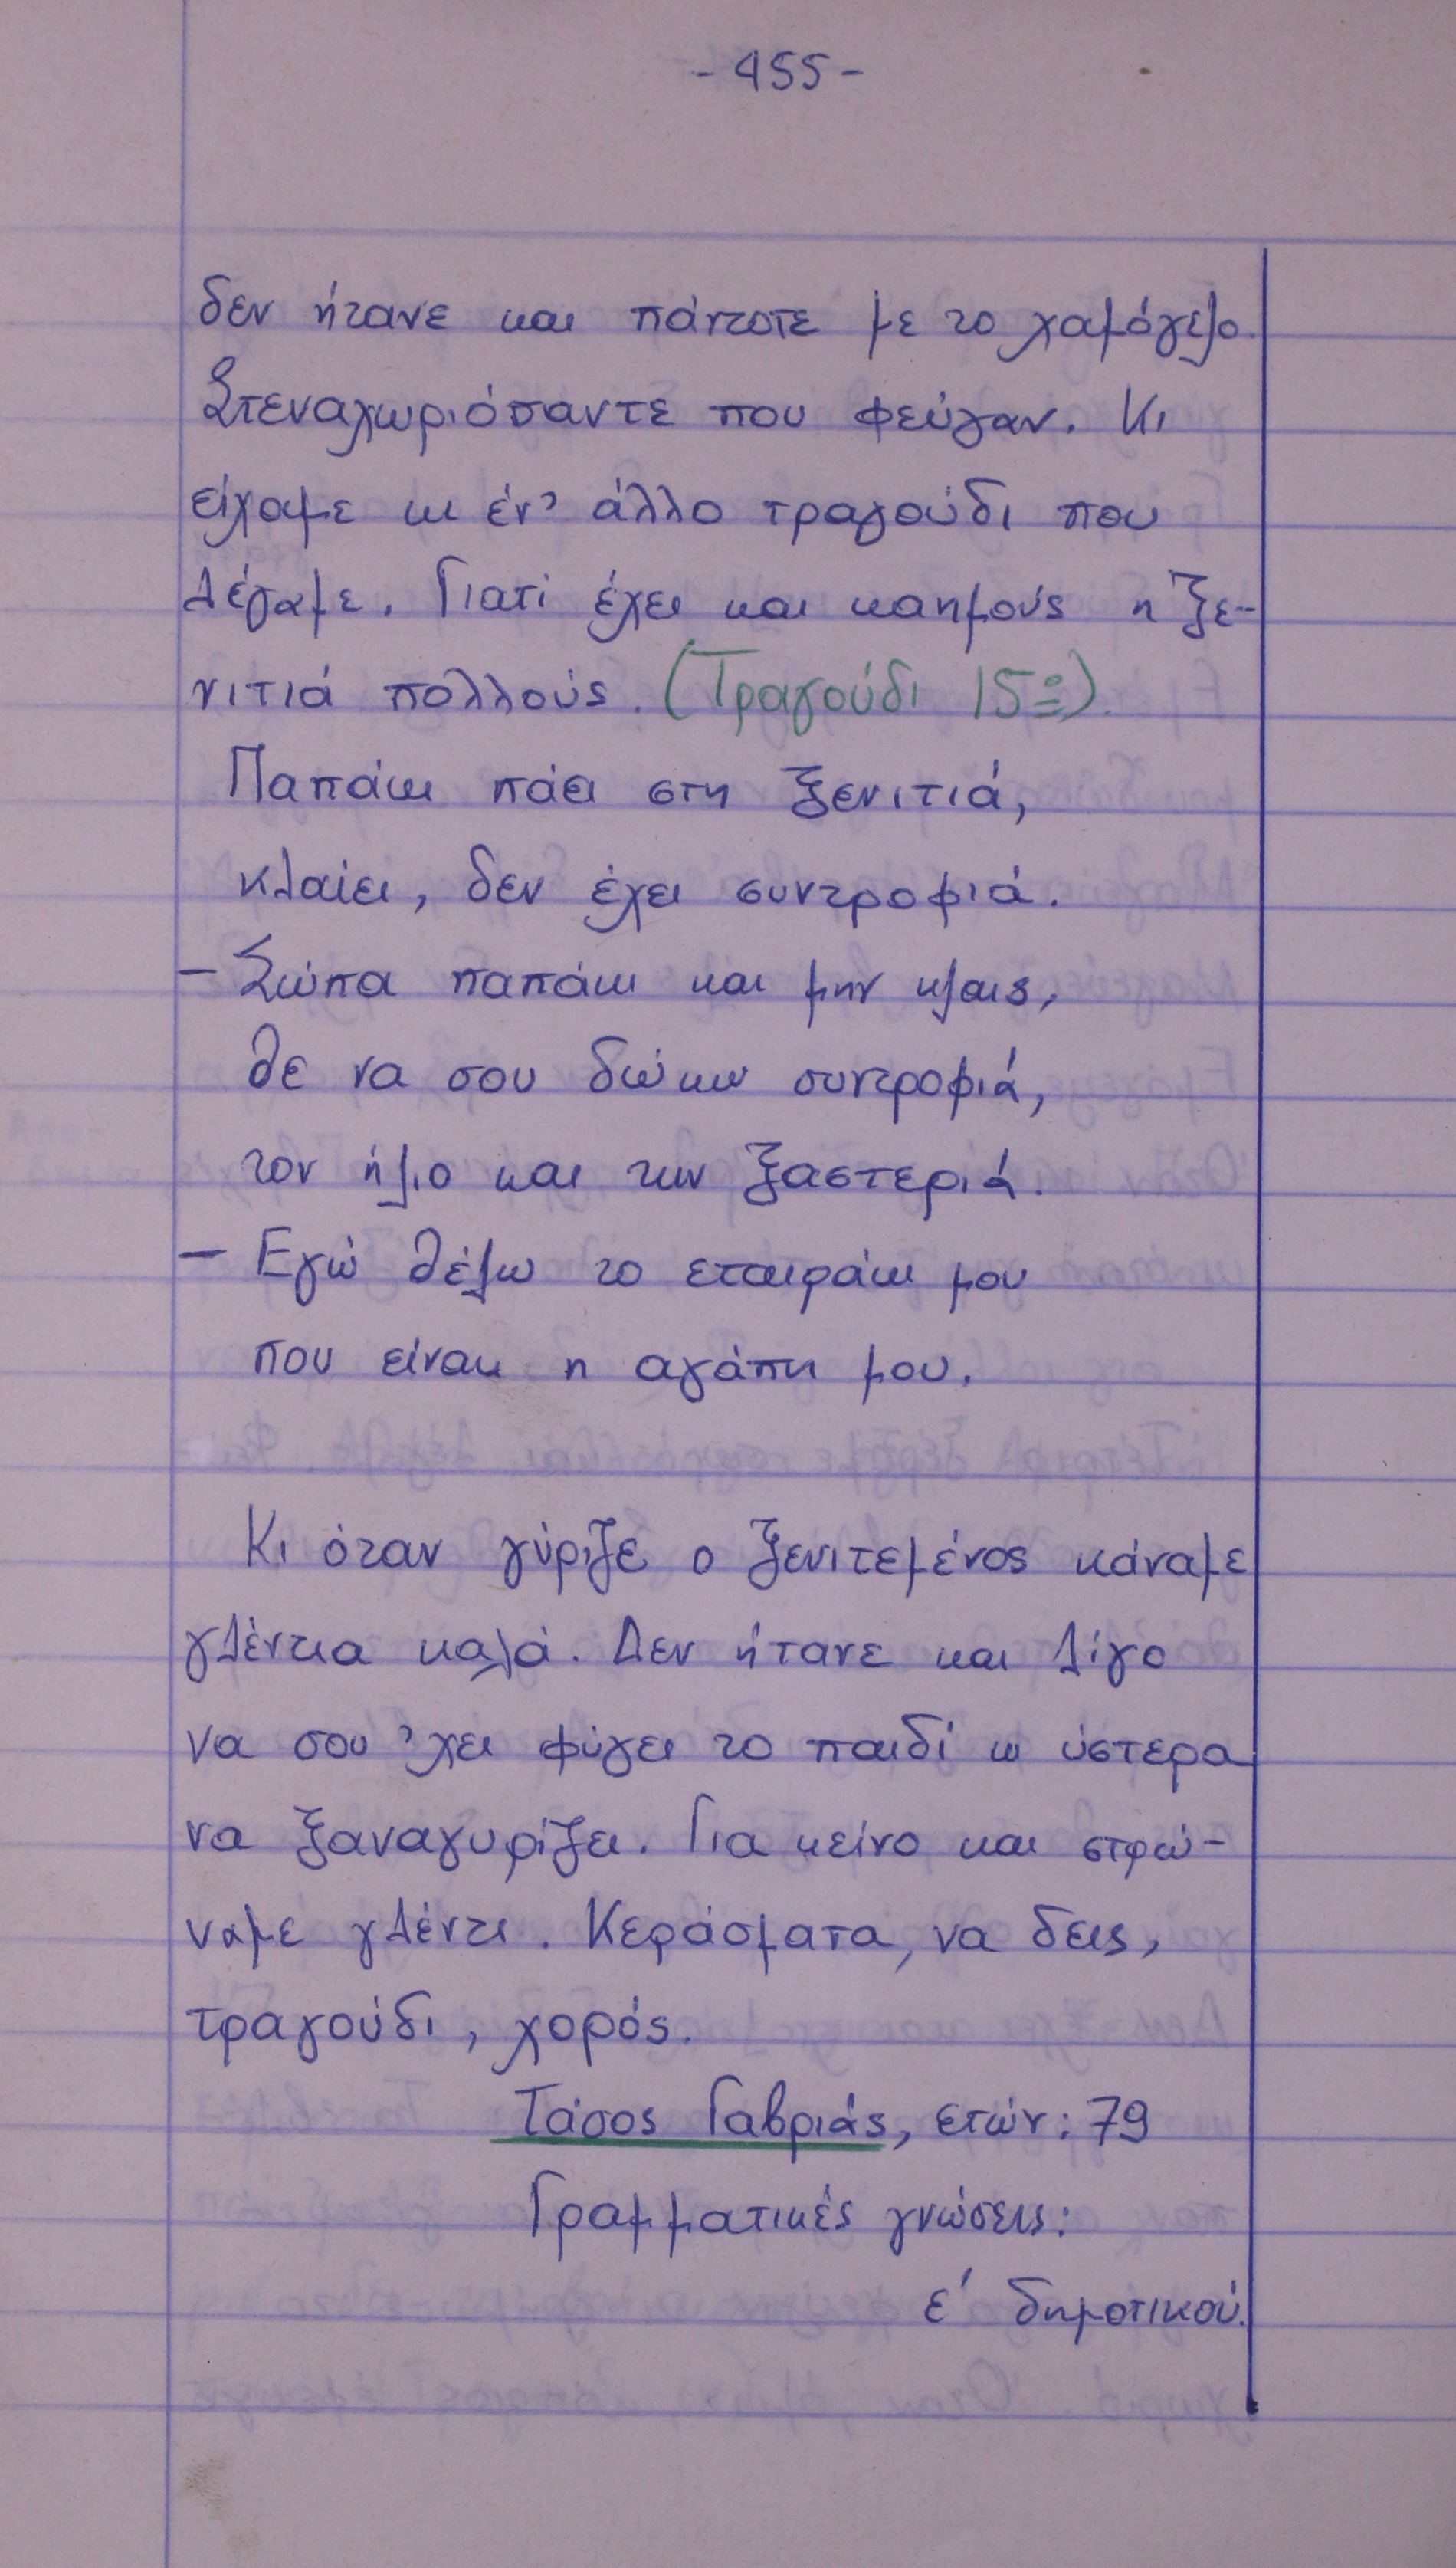 - 455 -
δεν ήτανε και πάντοτε με το χαμόγελο.
Στεναχωριόσαντε που φεύγαν. Κι
είχαμε κι έν' άλλο τραγούδι που
λέγαμε. Γιατί έχει και καημούς η ξε-
νιτιά πολλούς. (Τραγούδι 15º).
Παπάκι πάει στη ξενιτιά,
κλαίει, δεν έχει συντροφιά.
- Σώπα παπάκι και μην κλαις,
θε να σου δώκω συντροφιά,
τον ήλιο και την ξαστεριά.
- Εγώ θέλω το εταιράκι μου
που είναι η αγάπη μου.
Κι όταν γύριζε ο ξενιτεμένος κάναμε
γλέντια καλά. Δεν ήτανε και λίγο
να σου 'χει φύγει το παιδί κι ύστερα
να ξαναγυρίζει. Για κείνο και στρώ-
ναμε γλέντι. Κεράσματα, να δεις,
τραγούδι, χορός.
Τάσος Γαβριάς, ετών: 79
Γραμματικές γνώσεις:
ε' δημοτικού.